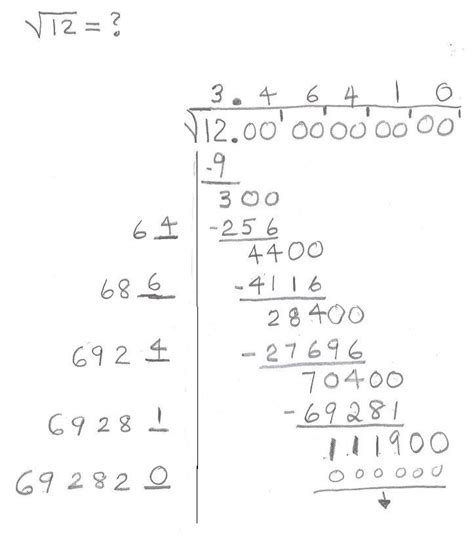 √12 = ?
3.46410
√12.00'00'00'00'00
-9
300
64 -256
4400
686 -4116
28400
6924 -27696
70400
69281 -69281
111900
692820 000000